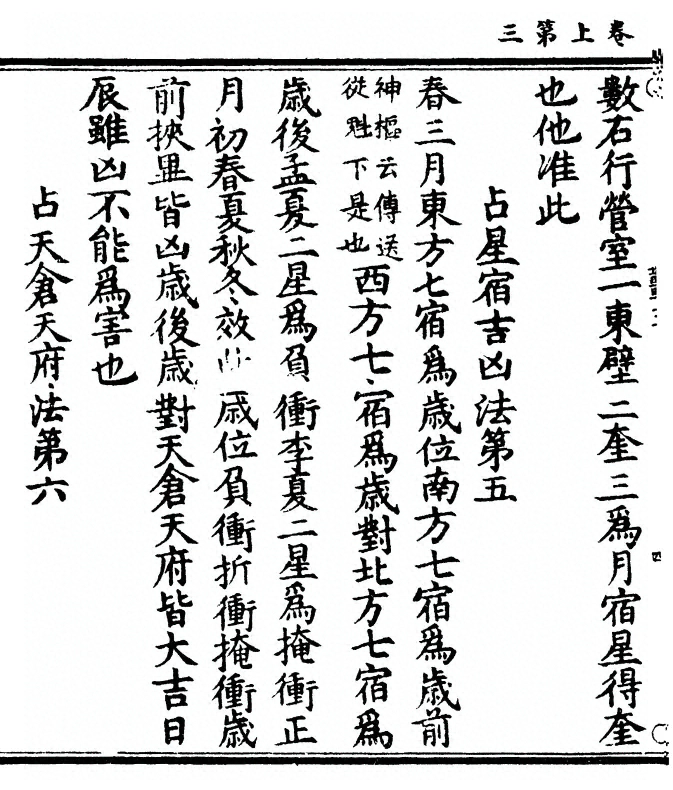 卷上第三
數石行營室一東壁二奎三爲月宿星得奎
也他准此
占星宿吉凶法第五
春三月東方七宿爲歲位南方七宿爲歲前
神樞云傳送
從魁下是也
西方七宿爲歲對北方七宿爲
歲後孟夏二星爲負衝李夏二星爲掩衝正
月初春夏秋冬效此歲位負衝折衝掩衝歲
前挾畢皆凶歲後歲對天倉天府皆大吉日
辰雖凶不能爲害也
占天倉天府法第六